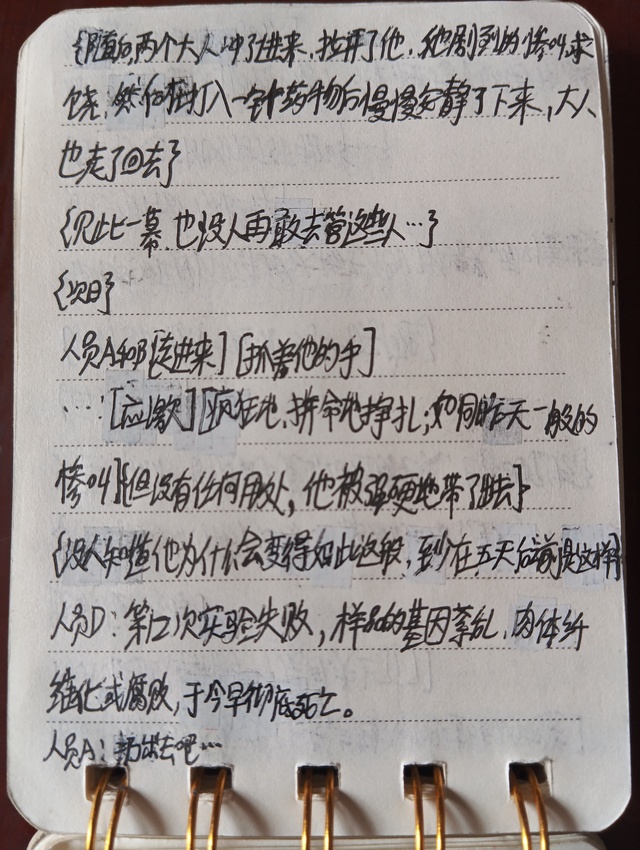 {随即两个大人冲了进来,拉开了他,他剧烈的惨叫求
饶;然而在打入一针药物后慢慢安静了下来,大人
也走了回去}
{见此一幕,也没人再敢去管这些人…}
{次日}
人员A和B[走进来][抓着他的手]
…:[应激][疯狂地,拼命地挣扎;如同昨天一般的
惨叫]{但没有任何用处,他被强硬地带了出去}
{没人知道他为什么会变得如此这般,至少在五天后前是这样}
人员D:第12次实验失败,样品的基因紊乱,肉体纤
维化或腐败,于今早彻底死亡。
人员A:扔出去吧…